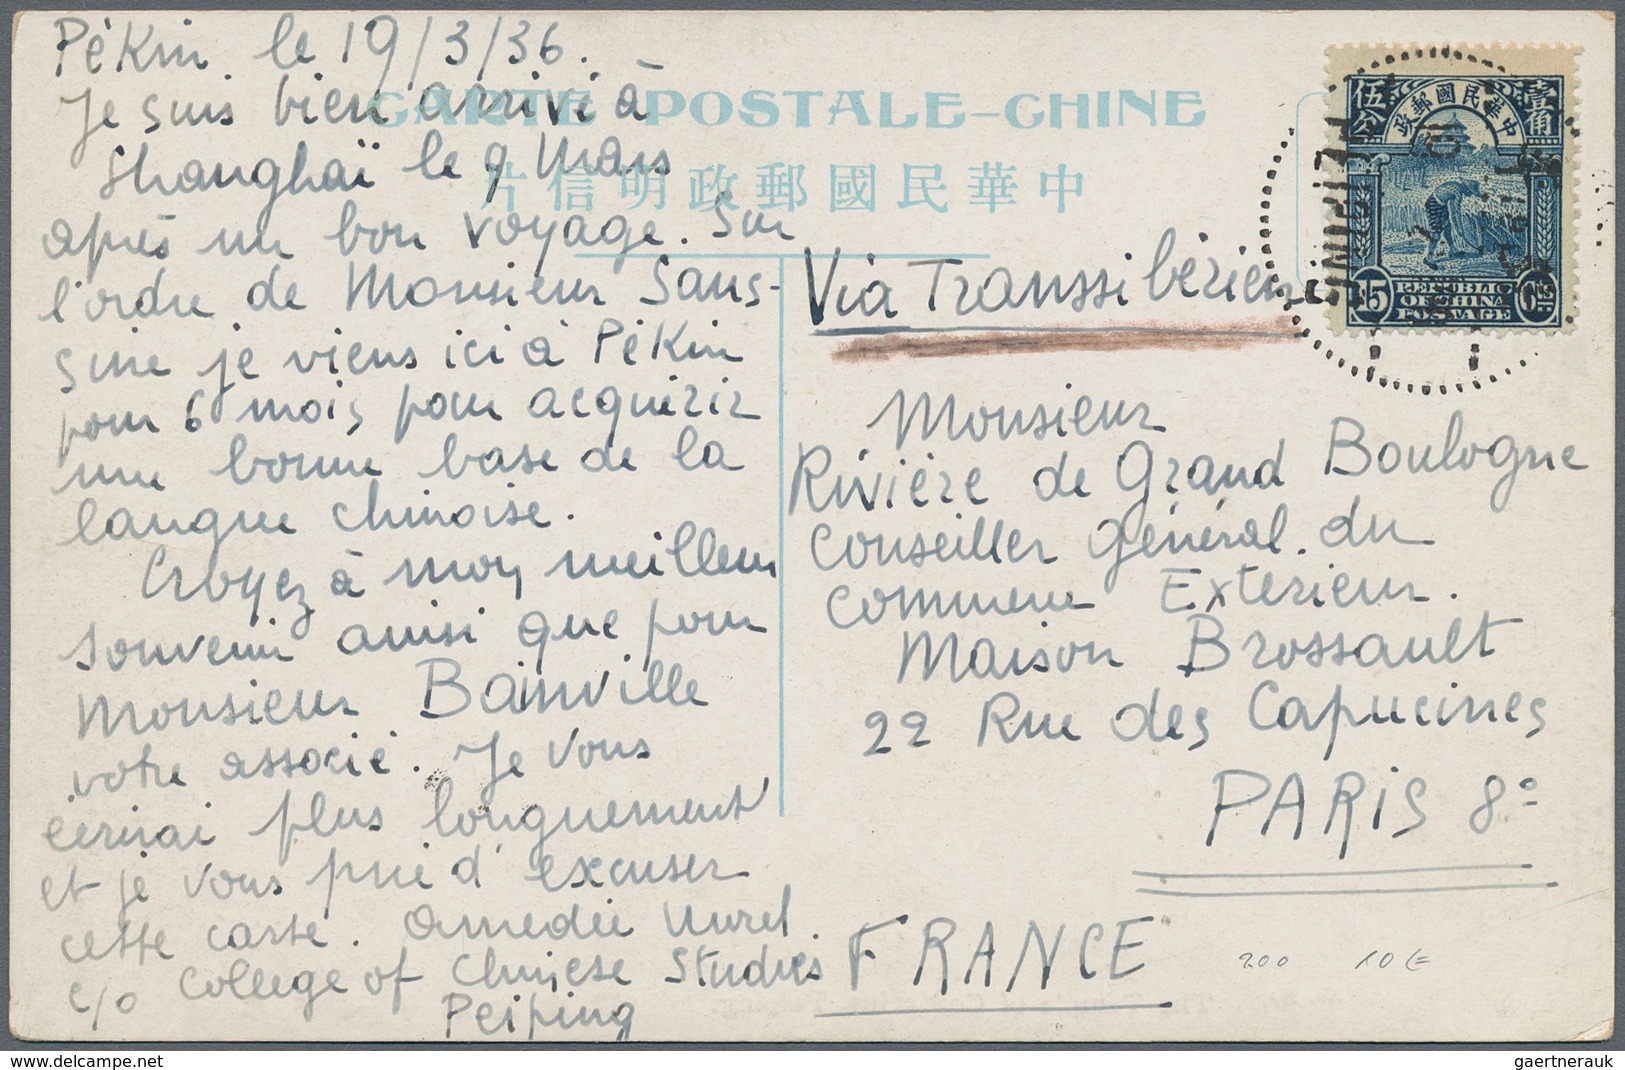 Pékin le 19/3/36.
Je suis bien arrivé à
Shanghaï le 9 Mars
après un bon voyage. Sur
l'ordre de Monsieur Sans-
sine je viens ici à Pékin
pour 6 mois pour acquérir
une bonne base de la
langue chinoise.
Croyez à mon meilleur
souvenir ainsi que pour
Monsieur Bainville
votre associé. Je vous
écrirai plus longuement
et je vous prie d'excuser
cette carte. Amédée
c/o College of Chinese Studies
Peiping
CARTE POSTALE-CHINE
片信明政郵國民華中
Via Transsibérien
Monsieur
Rivière de Grand Boulogne
Conseiller Général du
Commerce Exterieur.
Maison Brossault
22 Rue des Capucines
PARIS 8e
FRANCE
200 10 €
伍分 政郵國民華中 壹角
PEIPING
15 REPUBLIC OF CHINA POSTAGE cts
gaertnerauk